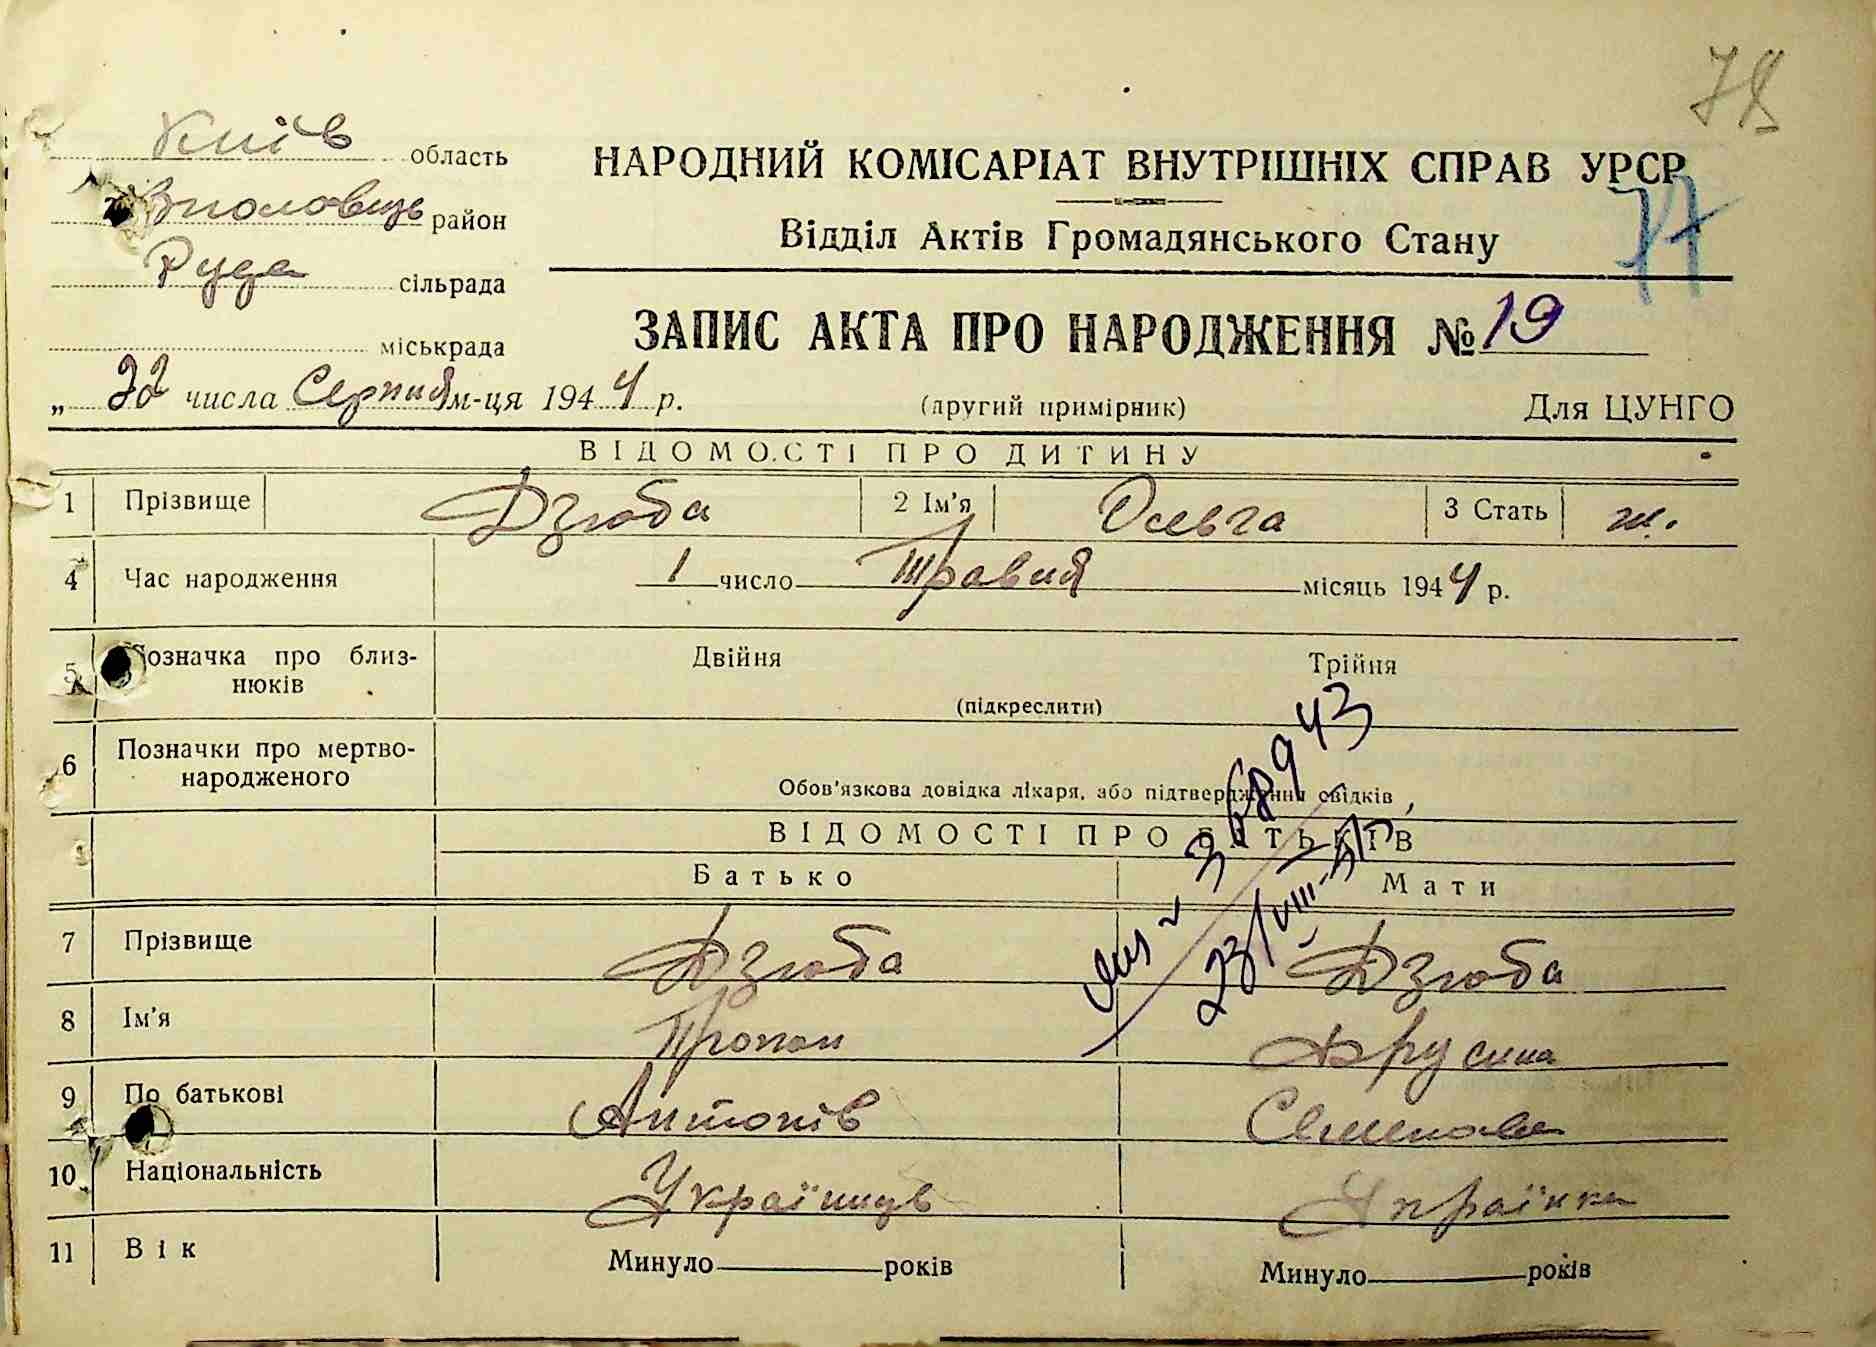 78
Київ область
район
Руда сільрада
міськрада
„ 22 числа Серпня м-ця 1944 р.
НАРОДНИЙ КОМІСАРІАТ ВНУТРІШНІХ СПРАВ УРСР
77
Відділ Актів Громадянського Стану
ЗАПИС АКТА ПРО НАРОДЖЕННЯ № 19
(другий примірник) Для ЦУНГО
ВІДОМОСТІ ПРО ДИТИНУ
1 Прізвище Дзюба 2 Ім'я Ольга 3 Стать ж.
4 Час народження 1 число Травня місяць 1944 р.
5 Позначка про близ- Двійня Трійня
нюків (підкреслити)
6 Позначки про мертво-
народженого Обов'язкова довідка лікаря, або підтвердження свідків
ВІДОМОСТІ ПРО БАТЬКІВ
Батько Мати
368943
23/VIII-
7 Прізвище Дзюба Дзюба
8 Ім'я
9 По батькові Антонів Семенова
10 Національність Українець Українка
11 Вік Минуло років Минуло років